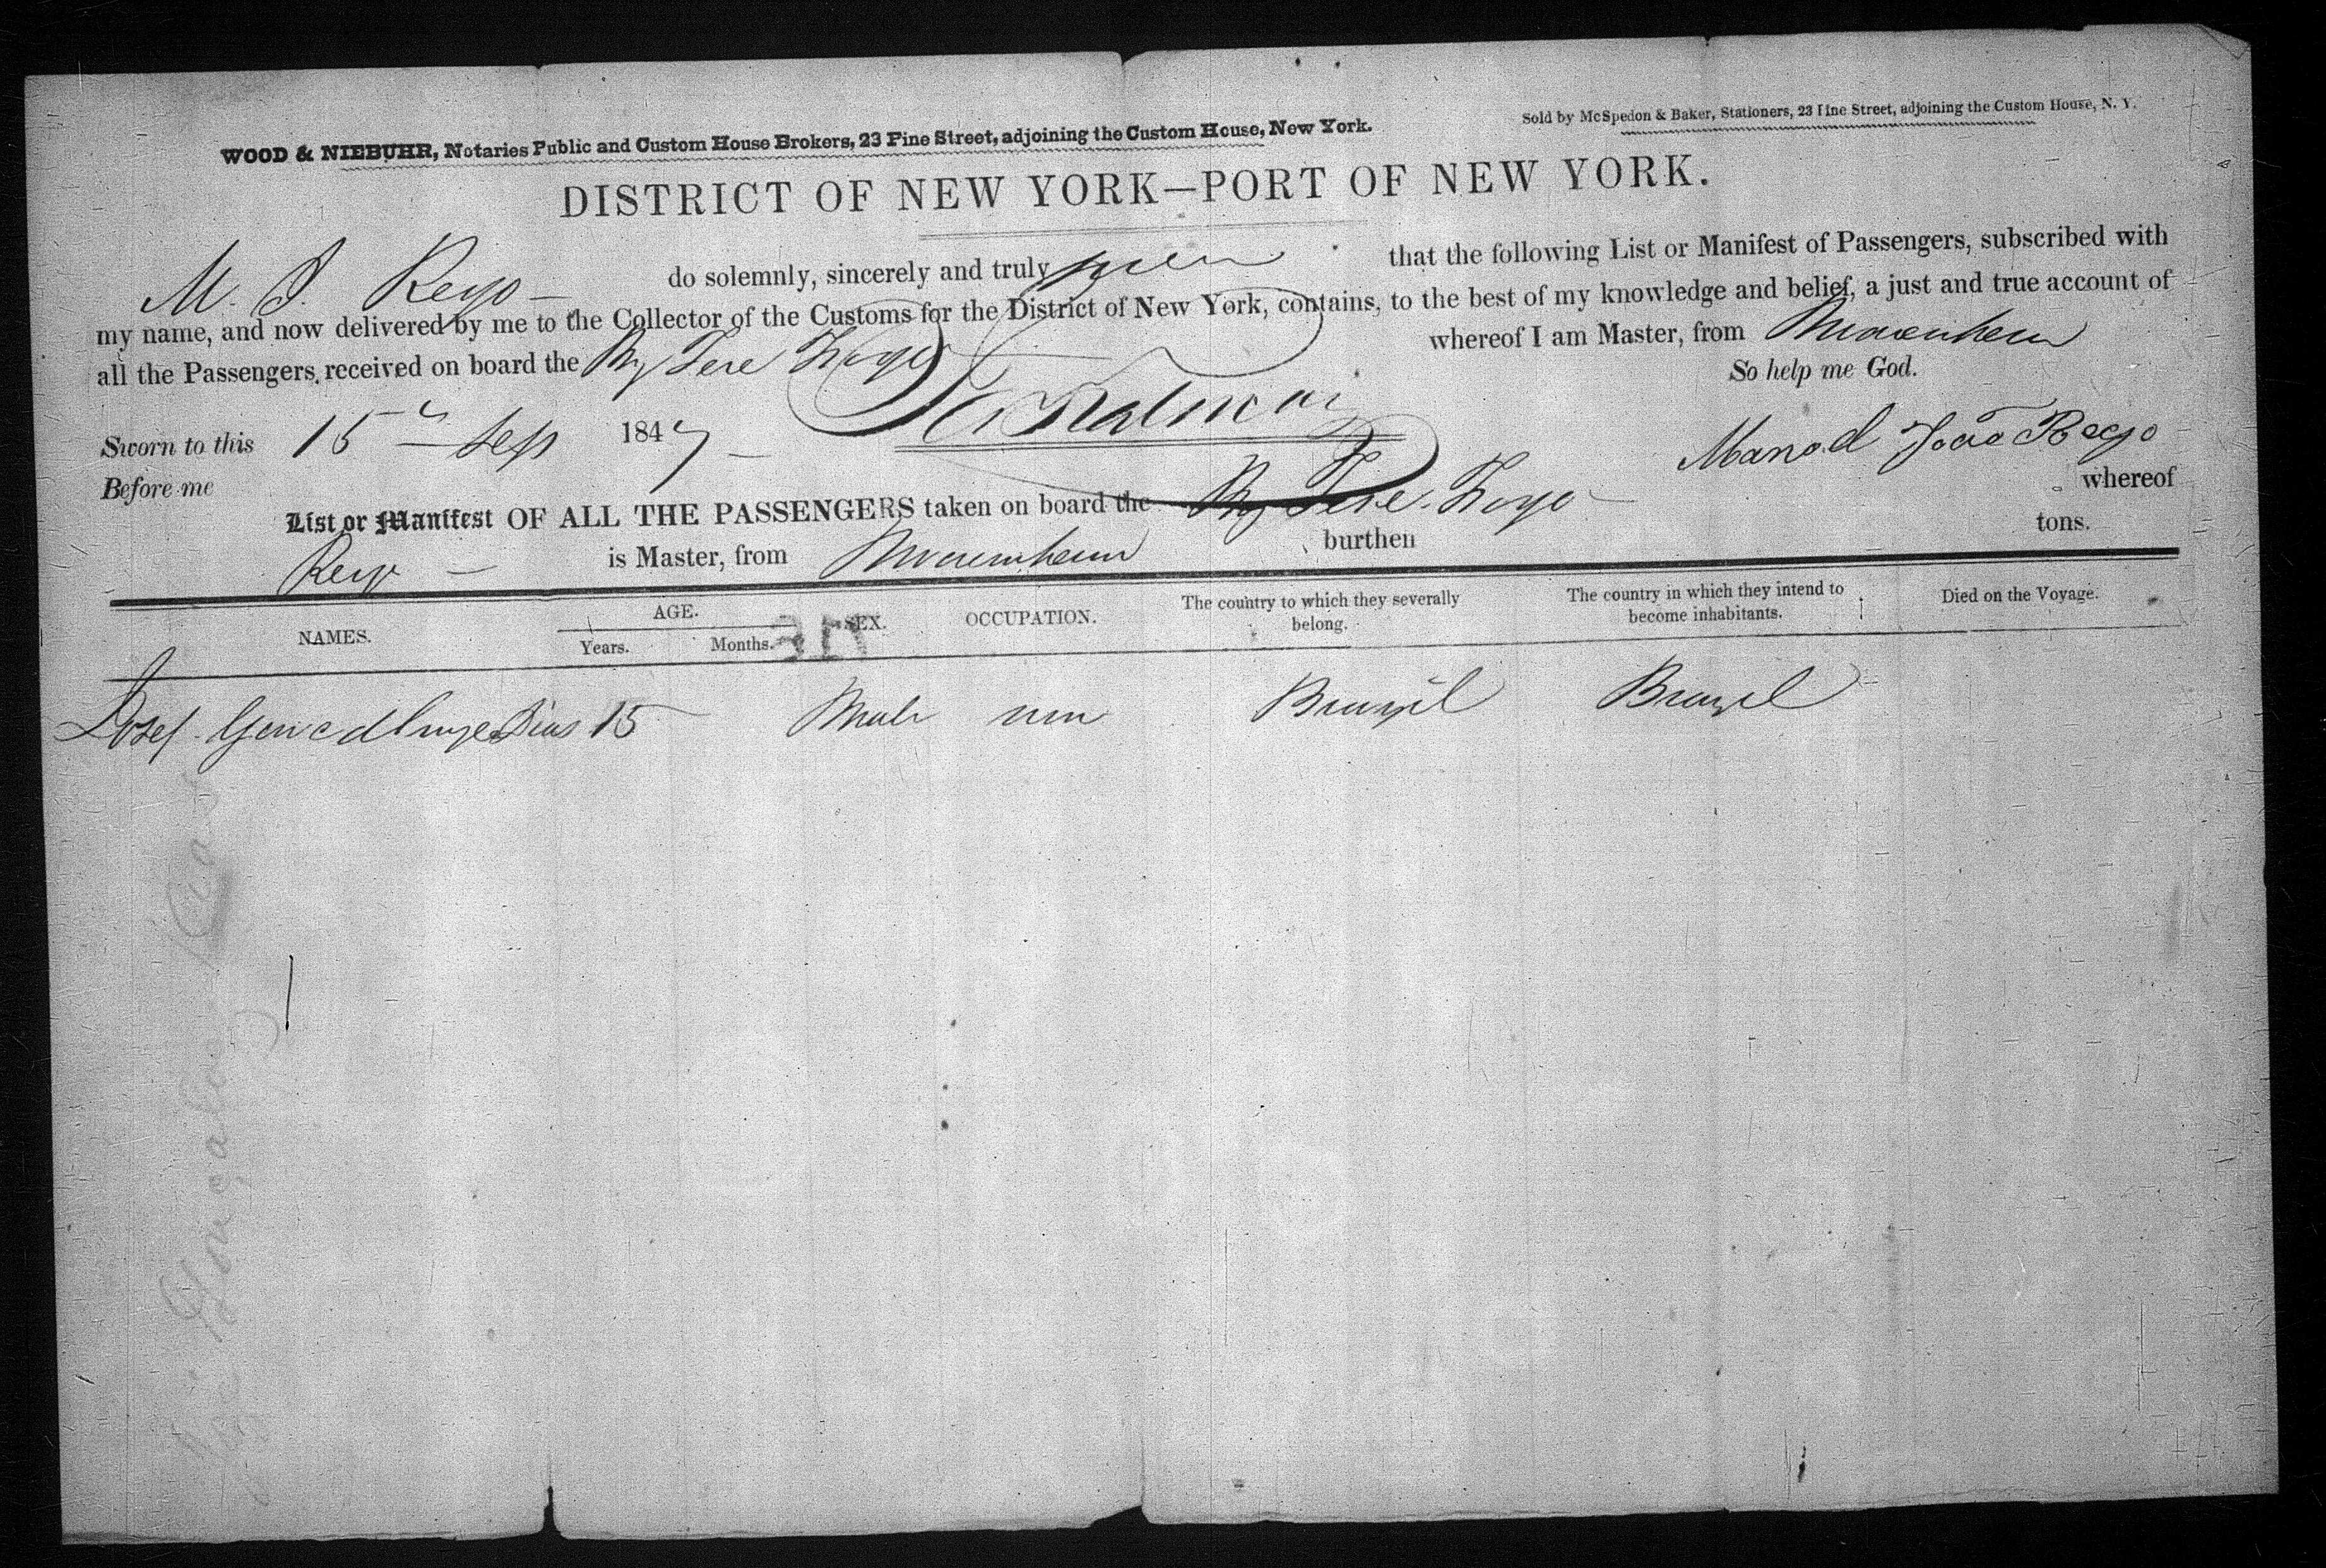 WOOD & NIEBUHR, Notaries Public and Custom House Brokers, 23 Pine Street, adjoining the Custom House, New York.
Sold by McSpedon & Baker, Stationers, 23 Pine Street, adjoining the Custom House, N. Y.
DISTRICT OF NEW YORK—PORT OF NEW YORK.
M. J. Rego — do solemnly, sincerely and truly that the following List or Manifest of Passengers, subscribed with
my name, and now delivered by me to the Collector of the Customs for the District of New York, contains, to the best of my knowledge and belief, a just and true account of
all the Passengers received on board the whereof I am Master, from Maranham
So help me God.
Sworn to this 15th Sep 1847 —
Manoel João Rego
Before me
List or Manifest OF ALL THE PASSENGERS taken on board the whereof
Rego — is Master, from Maranham burthen tons.
NAMES. AGE. Years. Months. SEX. OCCUPATION. The country to which they severally belong. The country in which they intend to become inhabitants. Died on the Voyage.
Dias 15 Male Brazil Brazil